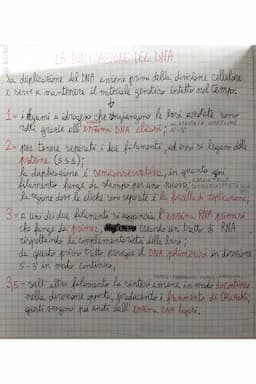 LA DUPLICAZIONE DEL DNA
La duplicazione del DNA avviene prima della divisione cellulare
e serve a mantenere il materiale genetico intatto nel tempo.
1= i legami a idrogeno che tengono le basi azotate sono
rotti grazie all'enzima DNA elicasi; 5'-3'
2= per tenere separati i due filamenti, ad essi si legano delle
proteine (s.s.b.);
la duplicazione è semiconservativa, in quanto ogni
filamento funge da stampo per uno nuovo;
la regione dove le eliche sono separate è la forcella di duplicazione;
3= a uno dei due filamenti si aggancia l'enzima RNA primasi
che funge da primer, creando un tratto di RNA
rispettando la complementarietà delle basi;
da questo primo tratto prosegue il DNA polimerasi in direzione
5-3' in modo continuo;
3,5= nell'altro filamento la sintesi avviene in modo discontinuo
nella direzione opposta, producendo i frammenti di Okazaki;
questi vengono poi uniti dall'enzima DNA ligasi.